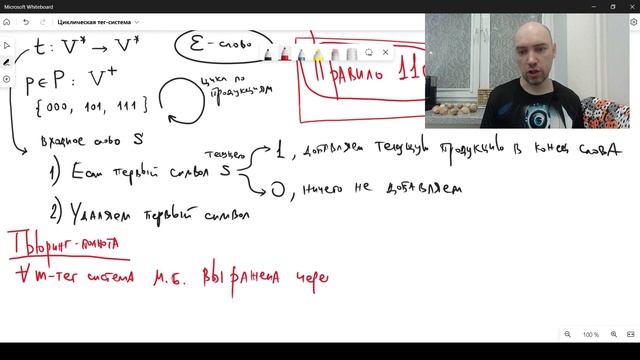 Microsoft Whiteboard
Циклическая тег-система
t: V* → V*
ε-слово
p∈P: V⁺
Цикл по продукциям
Правило 110
{000, 101, 111}
входное слово S
текущего
1) Если первый символ S
1, добавляем текущую продукцию в конец слова
0, ничего не добавляем
2) Удаляем первый символ
Тьюринг-полнота
∀ m-тег система м.б. выражена чере
100 %